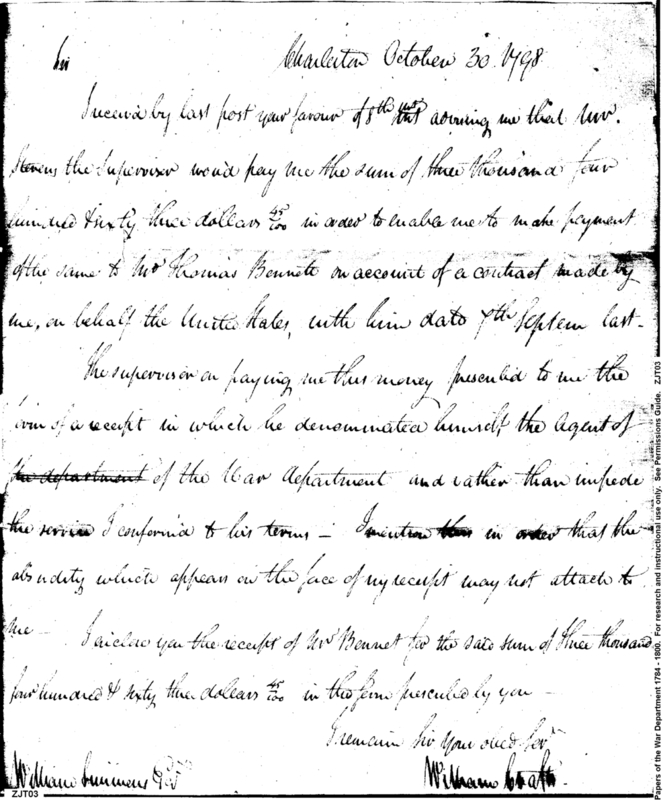 Sir
Charleston October 30 1798
I received by last post your favour of 8th inst advising me that Mr.
Stevens the Supervisor would pay me the sum of three thousand four
hundred & sixty three dollars 45/100 in order to enable me to make payment
of the same to Mr Thomas Bennett on account of a contract made by
me, on behalf the United States, with him date 7th Septem last -
The supervisor on paying me this money presented to me the
form of a receipt in which he denominated himself the Agent of
the department of the War department and rather than impede
the service I conform'd to his terms - I mention this in order that the
absurdity which appears on the face of my receipt may not attach to
me - I inclose you the receipt of Mr Bennet for the said sum of three thousand
four hundred & sixty three dollars 45/100 in the form prescribed by you -
I remain Sir your obed Servt
William Simmons Esqr
William Crafts.
ZJT03
Papers of the War Department 1784 - 1800. For research and instructional use only. See Permissions Guide. ZJT03